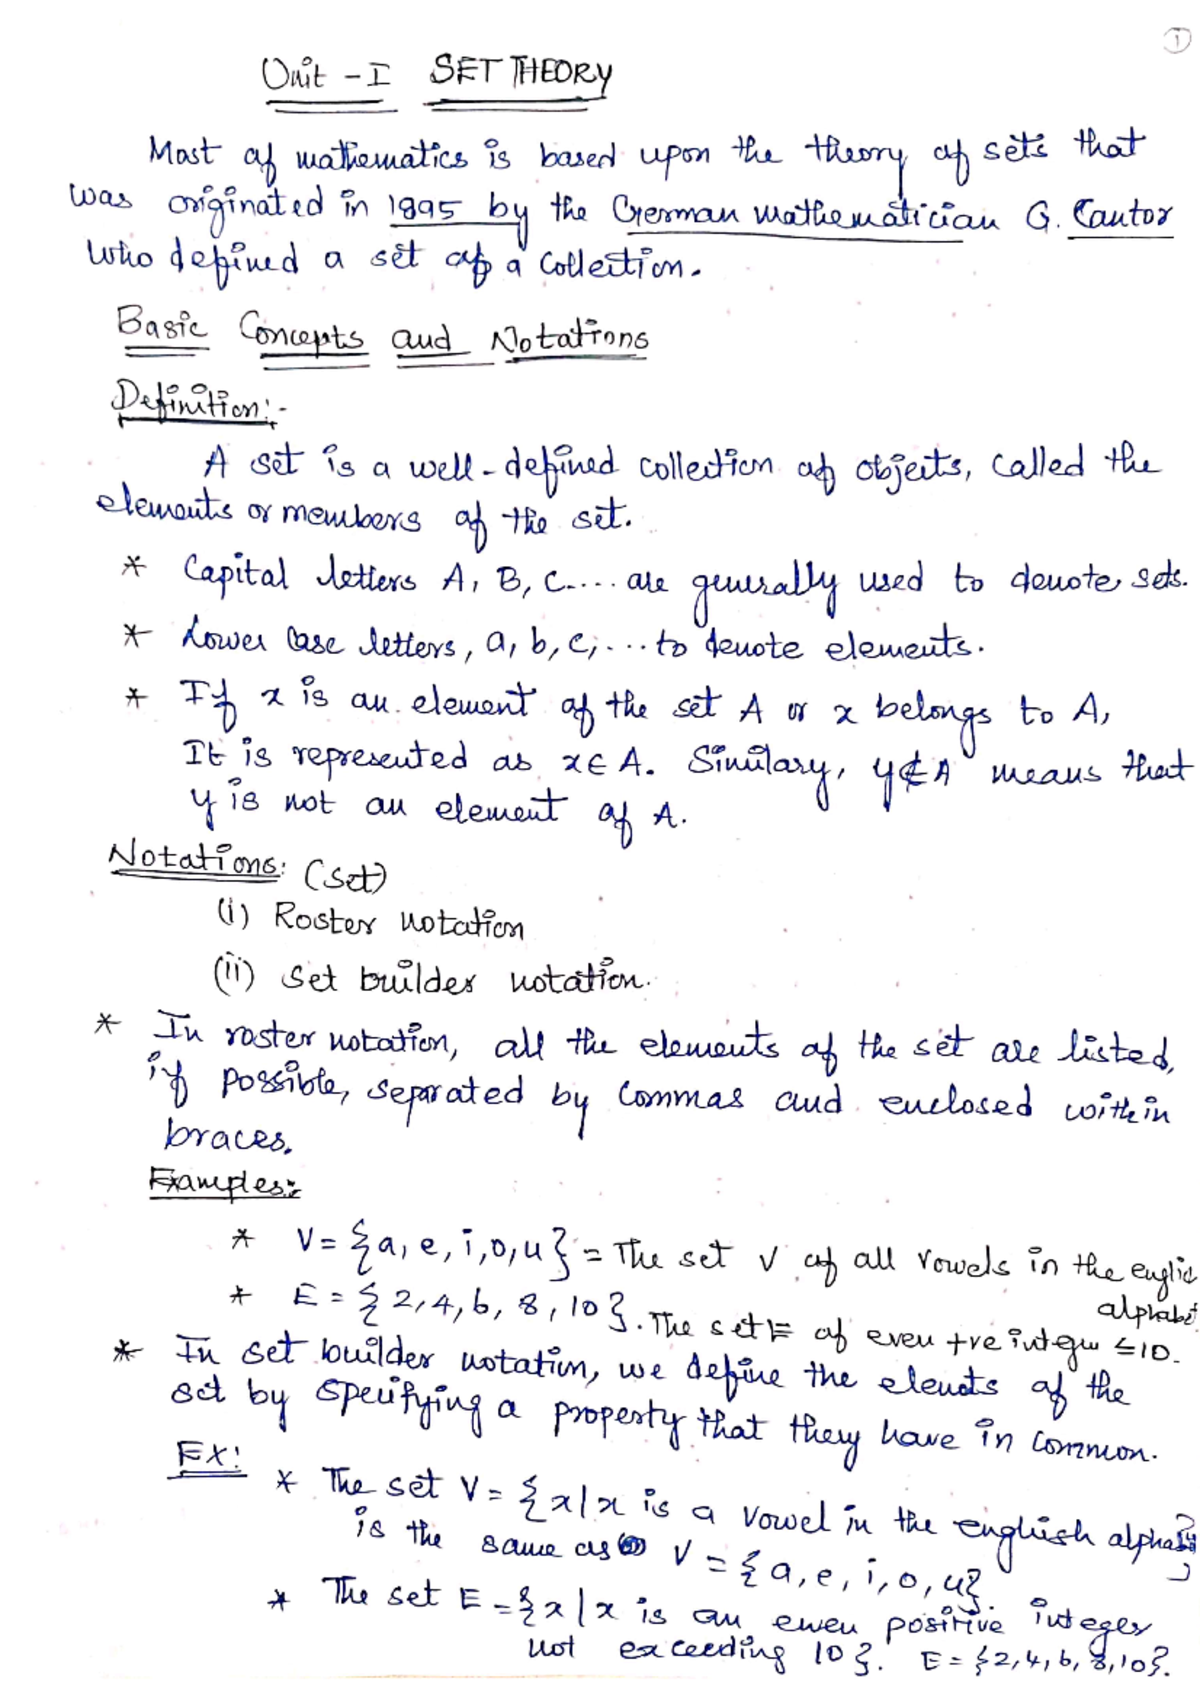 1
Unit - I SET THEORY
Most of mathematics is based upon the theory of sets that
was originated in 1895 by the German mathematician G. Cantor
who defined a set of a collection.
Basic Concepts and Notations
Definition:-
A set is a well-defined collection of objects, called the
elements or members of the set.
* Capital letters A, B, C.... are generally used to denote sets.
* Lower case letters, a, b, c, ... to denote elements.
* If x is an element of the set A or x belongs to A,
It is represented as x∈A. Similary, y∉A means that
y is not an element of A.
Notations: (set)
(i) Roster notation
(ii) set builder notation.
* In roster notation, all the elements of the set are listed,
if possible, separated by commas and enclosed within
braces.
Examples:
* V = {a, e, i, o, u} = The set V of all vowels in the englis
alphabet
* E = {2, 4, 6, 8, 10}. The set E of even +ve integer ≤10.
* In set builder notation, we define the elemets of the
set by specifying a property that they have in common.
Ex:
* The set V = {x|x is a vowel in the english alphabet}
is the same as V = {a, e, i, o, u}.
* The set E = {x|x is an even positive integer
not exceeding 10}. E = {2, 4, 6, 8, 10}.